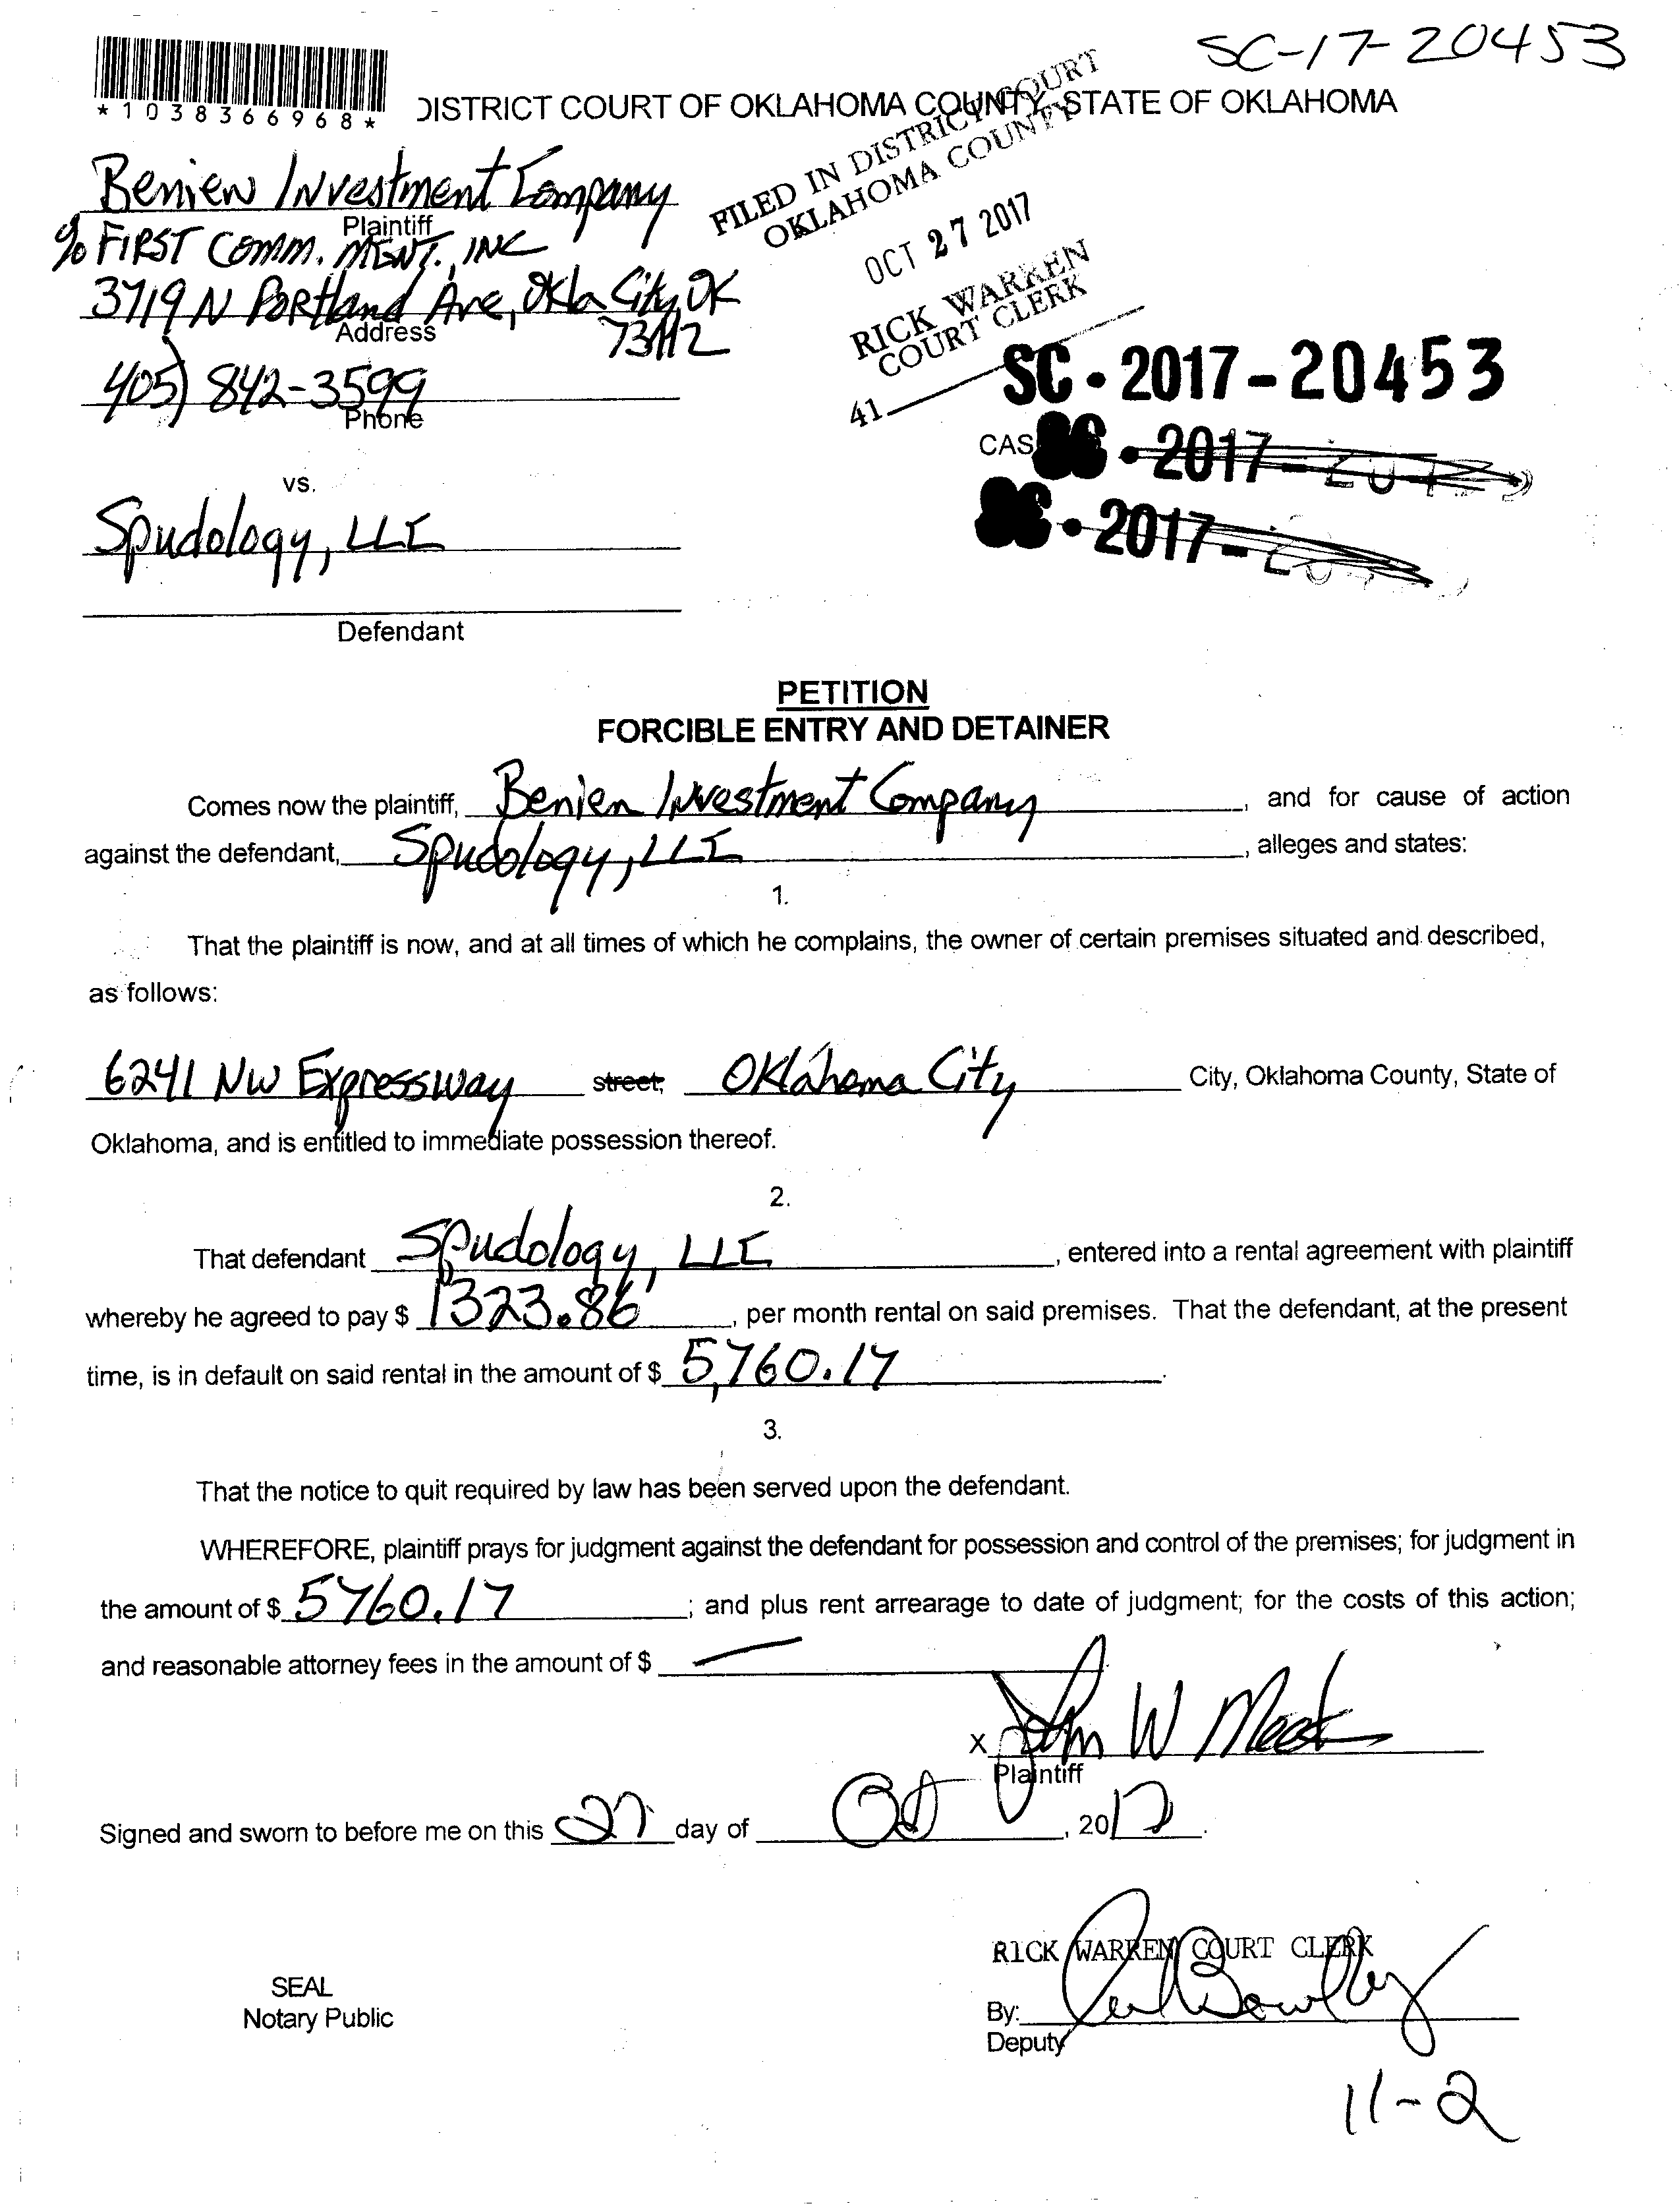 SC-17-20453
*1038366968*
DISTRICT COURT OF OKLAHOMA COUNTY, STATE OF OKLAHOMA
FILED IN DISTRICT COURT
OKLAHOMA COUNTY
OCT 27 2017
RICK WARREN
COURT CLERK
41
Benien Investment Company
Plaintiff
% FIRST COMM. MGNT., INC
3719 N PORtland Ave, Okla City, OK
73112
Address
405) 842-3599
Phone
SC-2017-20453
CAS
SC-2017-
SC-2017-
vs.
Spudology, LLC
Defendant
PETITION
FORCIBLE ENTRY AND DETAINER
Comes now the plaintiff, Benien Investment Company, and for cause of action
against the defendant, Spudology, LLC, alleges and states:
1.
That the plaintiff is now, and at all times of which he complains, the owner of certain premises situated and described,
as follows:
6241 NW Expressway street, Oklahoma City City, Oklahoma County, State of
Oklahoma, and is entitled to immediate possession thereof.
2.
That defendant Spudology, LLC, entered into a rental agreement with plaintiff
whereby he agreed to pay $ 1323.86, per month rental on said premises. That the defendant, at the present
time, is in default on said rental in the amount of $ 5,760.17.
3.
That the notice to quit required by law has been served upon the defendant.
WHEREFORE, plaintiff prays for judgment against the defendant for possession and control of the premises; for judgment in
the amount of $ 5760.17; and plus rent arrearage to date of judgment; for the costs of this action;
and reasonable attorney fees in the amount of $ —
X John W Meek
Plaintiff
Signed and sworn to before me on this 27 day of Oct, 2017.
RICK WARREN COURT CLERK
SEAL
Notary Public
By:
Deputy
11-2